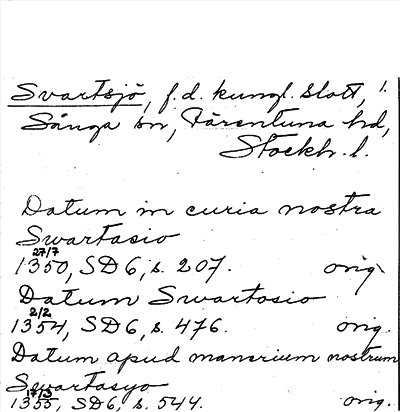 Svartsjö, f.d. kungl. slott, 1.
Sånga sn, Färentuna hd,
Stockh. l.
Datum in curia nostra
Swartasio
27/7
1350, SD6, s. 207. orig.
Datum Swartosio
2/2
1354, SD6, s. 476. orig.
Datum apud manerium nostrum
Swartasyo
17/3
1355, SD6, s. 544. orig.